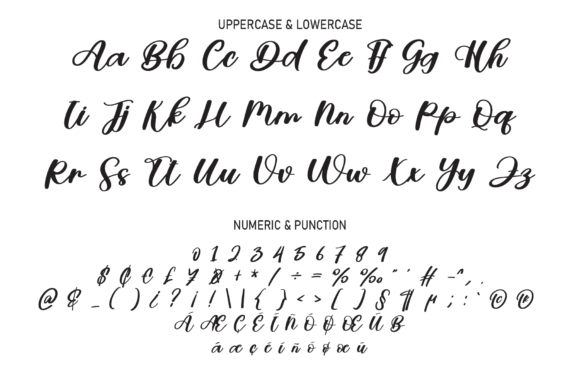 UPPERCASE & LOWERCASE
Aa Bb Cc Dd Ee Ff Gg Hh
Ii Jj Kk Ll Mm Nn Oo Pp Qq
Rr Ss Tt Uu Vv Ww Xx Yy Zz
NUMERIC & PUNCTION
0 1 2 3 4 5 6 7 8 9
$ ₵ € £ ¥ + * / ÷ = % ‰ " ' # - ~ , .
@ $ _ ( ) ¿ ? ¡ ! \ | { } < > [ ] § ¶ µ ; : © ®
Á Æ Ç É Í Ñ Ó Ø Œ Ü ß
á æ ç é í ñ ó ø œ ü